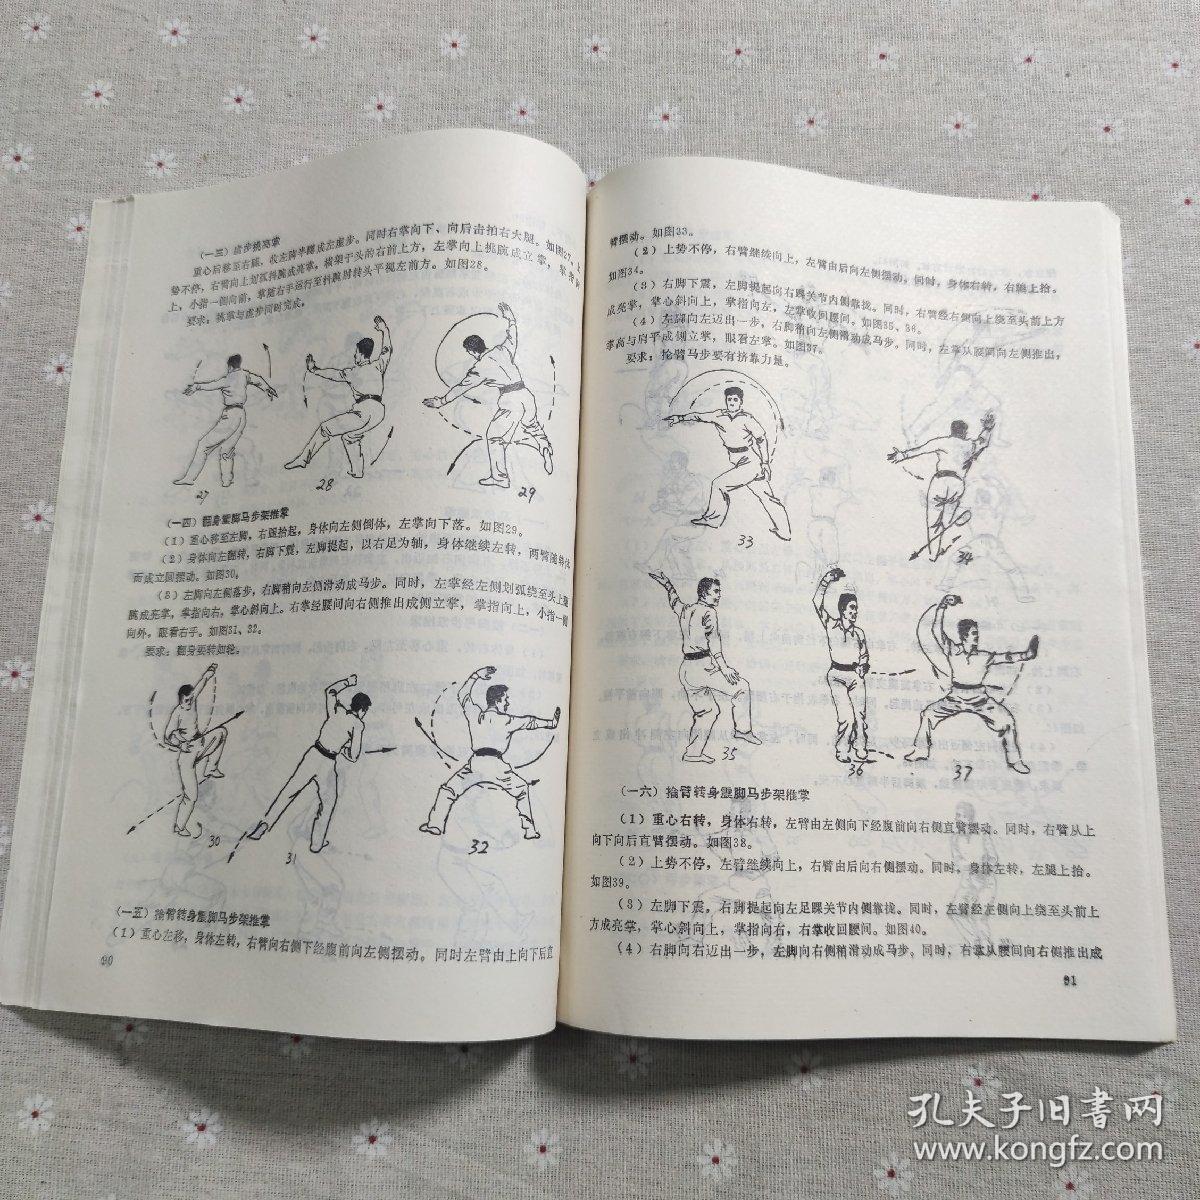 (一三)虚步挑亮掌
重心后移至右腿,收左脚半蹲成左虚步。同时右掌向下、向后击拍右大腿。如图27。上
势不停,右臂向上划弧抖腕成亮掌,横架于头的右前上方,左掌向上挑腕成立掌,掌指向
上,小指一侧向前,掌随右手运行至抖腕时转头平视左前方。如图28。
要求:挑掌与虚步同时完成。
27
28
29
(一四)翻身震脚马步架推掌
(1)重心移至左脚,右腿抬起,身体向左侧倒体,左掌向下落。如图29。
(2)身体向左翻转,右脚下震,左脚提起,以右足为轴,身体继续左转,两臂随转体
而成立圆摆动。如图30。
(3)左脚向左侧落步,右脚稍向左侧滑动成马步。同时,左掌经左侧划弧绕至头上抖
腕成亮掌,掌指向右,掌心斜向上。右掌经腰间向右侧推出成侧立掌,掌指向上,小指一侧
向外,眼看右手。如图31、32。
要求:翻身要转如轮。
30
31
32
(一五)抡臂转身震脚马步架推掌
(1)重心左移,身体左转,右臂向右侧下经腹前向左侧摆动。同时左臂由上向下后直
90
臂摆动。如图33。
(2)上势不停,右臂继续向上,左臂由后向左侧摆动。同时,身体右转,右腿上抬。
如图34。
(3)右脚下震,左脚提起向右踝关节内侧靠拢。同时,右臂经右侧向上绕至头前上方
成亮掌,掌心斜向上,掌指向左,左掌收回腰间。如图35、36。
(4)左脚向左迈出一步,右脚稍向左侧滑动成马步。同时,左掌从腰间向左侧推出,
掌高与肩平成侧立掌,眼看左掌。如图37。
要求:抡臂马步要有挤靠力量。
33
34
35
36
37
(一六)抡臂转身震脚马步架推掌
(1)重心右转,身体右转,左臂由左侧向下经腹前向右侧直臂摆动。同时,右臂从上
向下向后直臂摆动。如图38。
(2)上势不停,左臂继续向上,右臂由后向右侧摆动。同时,身体左转,左腿上抬。
如图39。
(3)左脚下震,右脚提起向左足踝关节内侧靠拢。同时,左臂经左侧向上绕至头前上
方成亮掌,掌心斜向上,掌指向右,右掌收回腰间。如图40。
(4)右脚向右迈出一步,左脚向右侧稍滑动成马步。同时,右掌从腰间向右侧推出成
91
孔夫子旧书网
www.kongfz.com